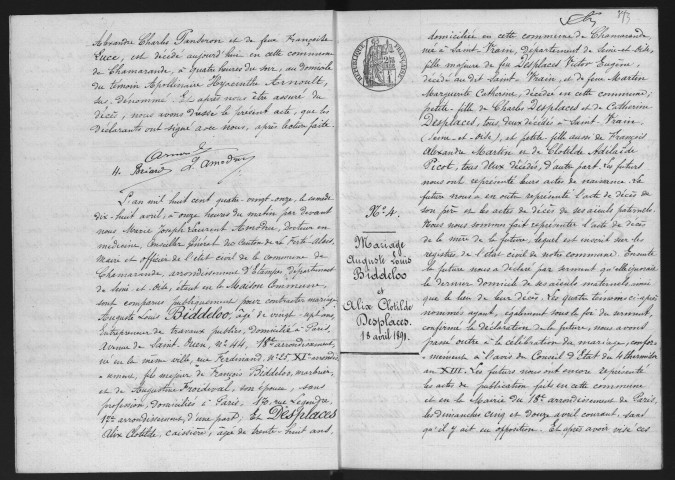 Alexandre Charles Pandoron et de feue Françoise
Luce, est décédé aujourd'hui en cette commune
de Chamarande, à quatre heures du soir, au domicile
du témoin Apollinaire Hyacinthe Arnoult,
sus-dénommé. Et après nous être assuré du
décès, nous avons dressé le présent acte, que les
déclarants ont signé avec nous, après lecture faite.
L'an mil huit cent quatre-vingt-onze, le samedi
dix-huit avril, à onze heures du matin, par devant
nous Marie Joseph Laurent Amodru, docteur en
médecine, Conseiller général du Canton de La Ferté-Alais,
Maire et officier de l'état civil de la commune de
Chamarande, arrondissement d'Etampes, département
de Seine et Oise, étant en la Maison Commune,
sont comparus publiquement pour contracter mariage
Auguste Louis Biddeloo, âgé de vingt-sept ans,
Entrepreneur de travaux publics, domicilié à Paris,
avenue de Saint-Ouen, N° 44, 18e arrondissement,
né en la même ville, rue Ferdinand N° 25, XIe arrondis-
sement, fils majeur de François Biddeloo, marbrier,
et de Augustine Froideval, son épouse, sans
profession, domiciliés à Paris, rue Legendre,
17e arrondissement, d'une part, Et Desplaces
Alix Clotilde, caissière, âgée de trente-huit ans,
N° 4.
Mariage
Auguste Louis
Biddeloo
et
Alix Clotilde
Desplaces.
18 avril 1891.
domiciliée en cette commune de Chamarande,
née à Saint-Vrain, département de Seine-et-Oise,
fille majeure de feu Desplaces Victor Eugène,
décédé au dit Saint-Vrain, et de feue Martin
Marguerite Catherine, décédée en cette commune;
petite-fille de Charles Desplaces et de Catherine
Desplaces, tous deux décédés à Saint-Vrain,
(Seine-et-Oise), et petite-fille aussi de François
Alexandre Martin et de Clotilde Adélaïde
Picot, tous deux décédés, d'autre part. Les futurs
nous ont représenté leurs actes de naissance. La
future nous a en outre représenté l'acte de décès de
son père et les actes de décès de ses aïeuls paternels.
Nous nous sommes fait représenter l'acte de décès
de la mère de la future, lequel est inscrit sur les
registres de l'état civil de notre commune. Ensuite
la future nous a déclaré par serment qu'elle ignorait
le dernier domicile de ses aïeuls maternels ainsi
que le lieu de leur décès. Les quatre témoins ci-après
nommés ayant, également sous la foi du serment,
confirmé la déclaration de la future, nous avons
passé outre à la célébration du mariage, confor-
mément à l'avis du Conseil d'Etat du 4 thermidor
an XIII. Les futurs nous ont encore représenté
les actes de publication faits en cette commune
et en la Mairie du 18e arrondissement de Paris,
les dimanches cinq et douze avril courant, sans
qu'il y ait eu opposition. Et après avoir visé ces